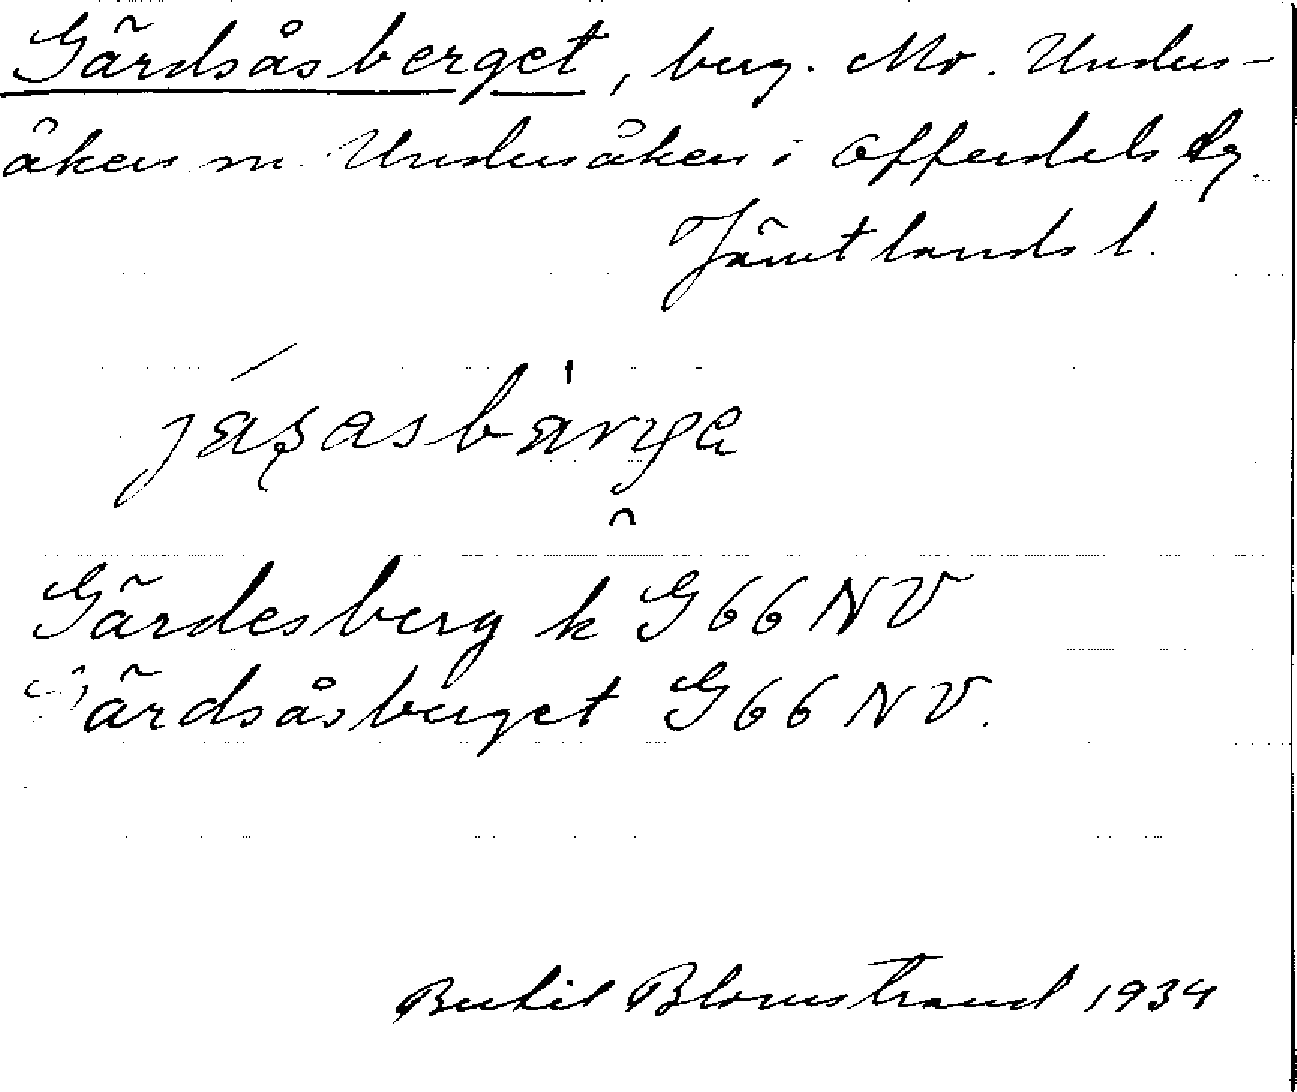 Gärdsåsberget, berg. Mo. Unders-
åkers sn. Undersåkers i Offerdals tg.
Jämtlands l.
Gärdesberg k G 66 NV
Gärdsåsberget G 66 NV.
Bertil Blomstrand 1934